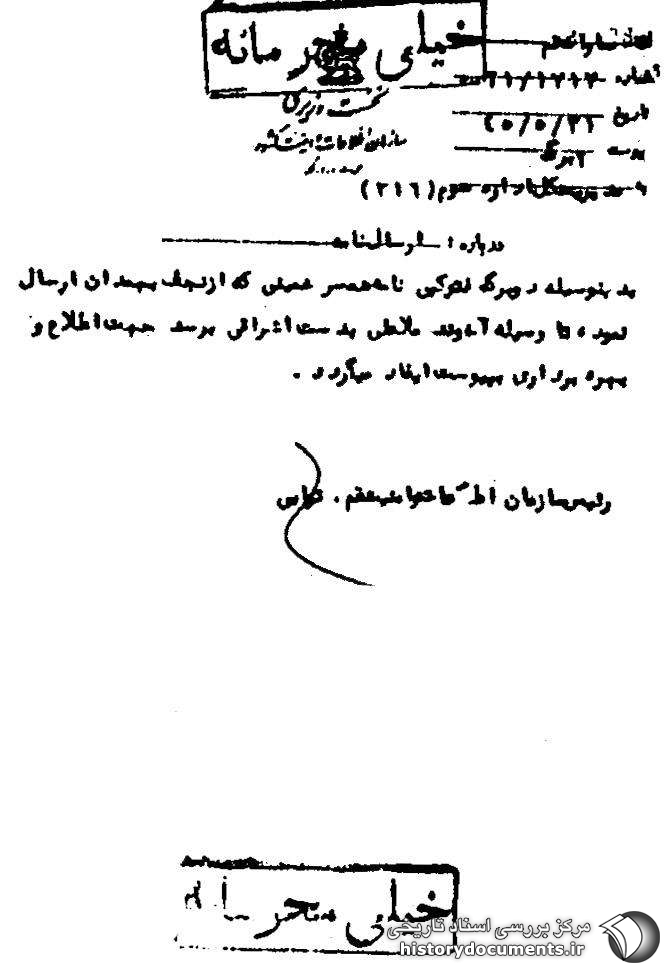 خیلی محرمانه
نخست وزیری
سازمان اطلاعات و امنیت کشور
شماره
تاریخ ۵۰/۵/۳۱
پیوست ۲ برگ
به مدیریت کل اداره سوم (۳۱۶)
درباره : ارسال نامه
بدینوسیله دوبرگ فتوکپی نامه همسر خمینی که از نجف بهمدان ارسال
نموده تا وسیله آخوند ملاعلی بدست اشراقی برسد جهت اطلاع و
بهره برداری بپیوست ایفاد میگردد .
رئیس سازمان اطلاعات و امنیت قم .
خیلی محرمانه
مرکز بررسی اسناد تاریخی
historydocuments.ir